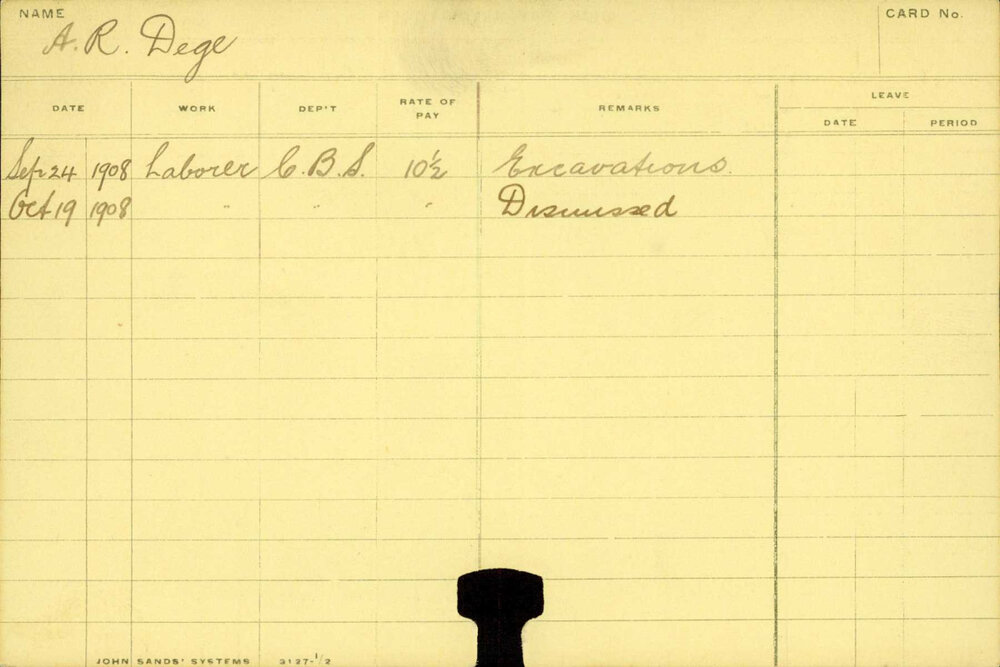 NAME A. R. Dege CARD No.
DATE WORK DEP'T RATE OF PAY REMARKS LEAVE
DATE PERIOD
Sep 24 1908 Laborer C.B.S. 10½ Excavations.
Oct 19 1908 " " " Dismissed
JOHN SANDS' SYSTEMS 3127-1/2